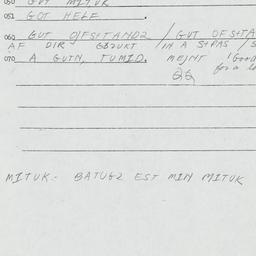 050 GUT MITUK
051 GOT HELF .
060 GUT OJFSHTAND2 / GUT OFSTA
AF DIR GEZUKT / IN A SHPAS / S
070 A GUTN, TUMID. MEJNT 'Good
for a l
MITUK - BATUG2 EST MIN MITUK